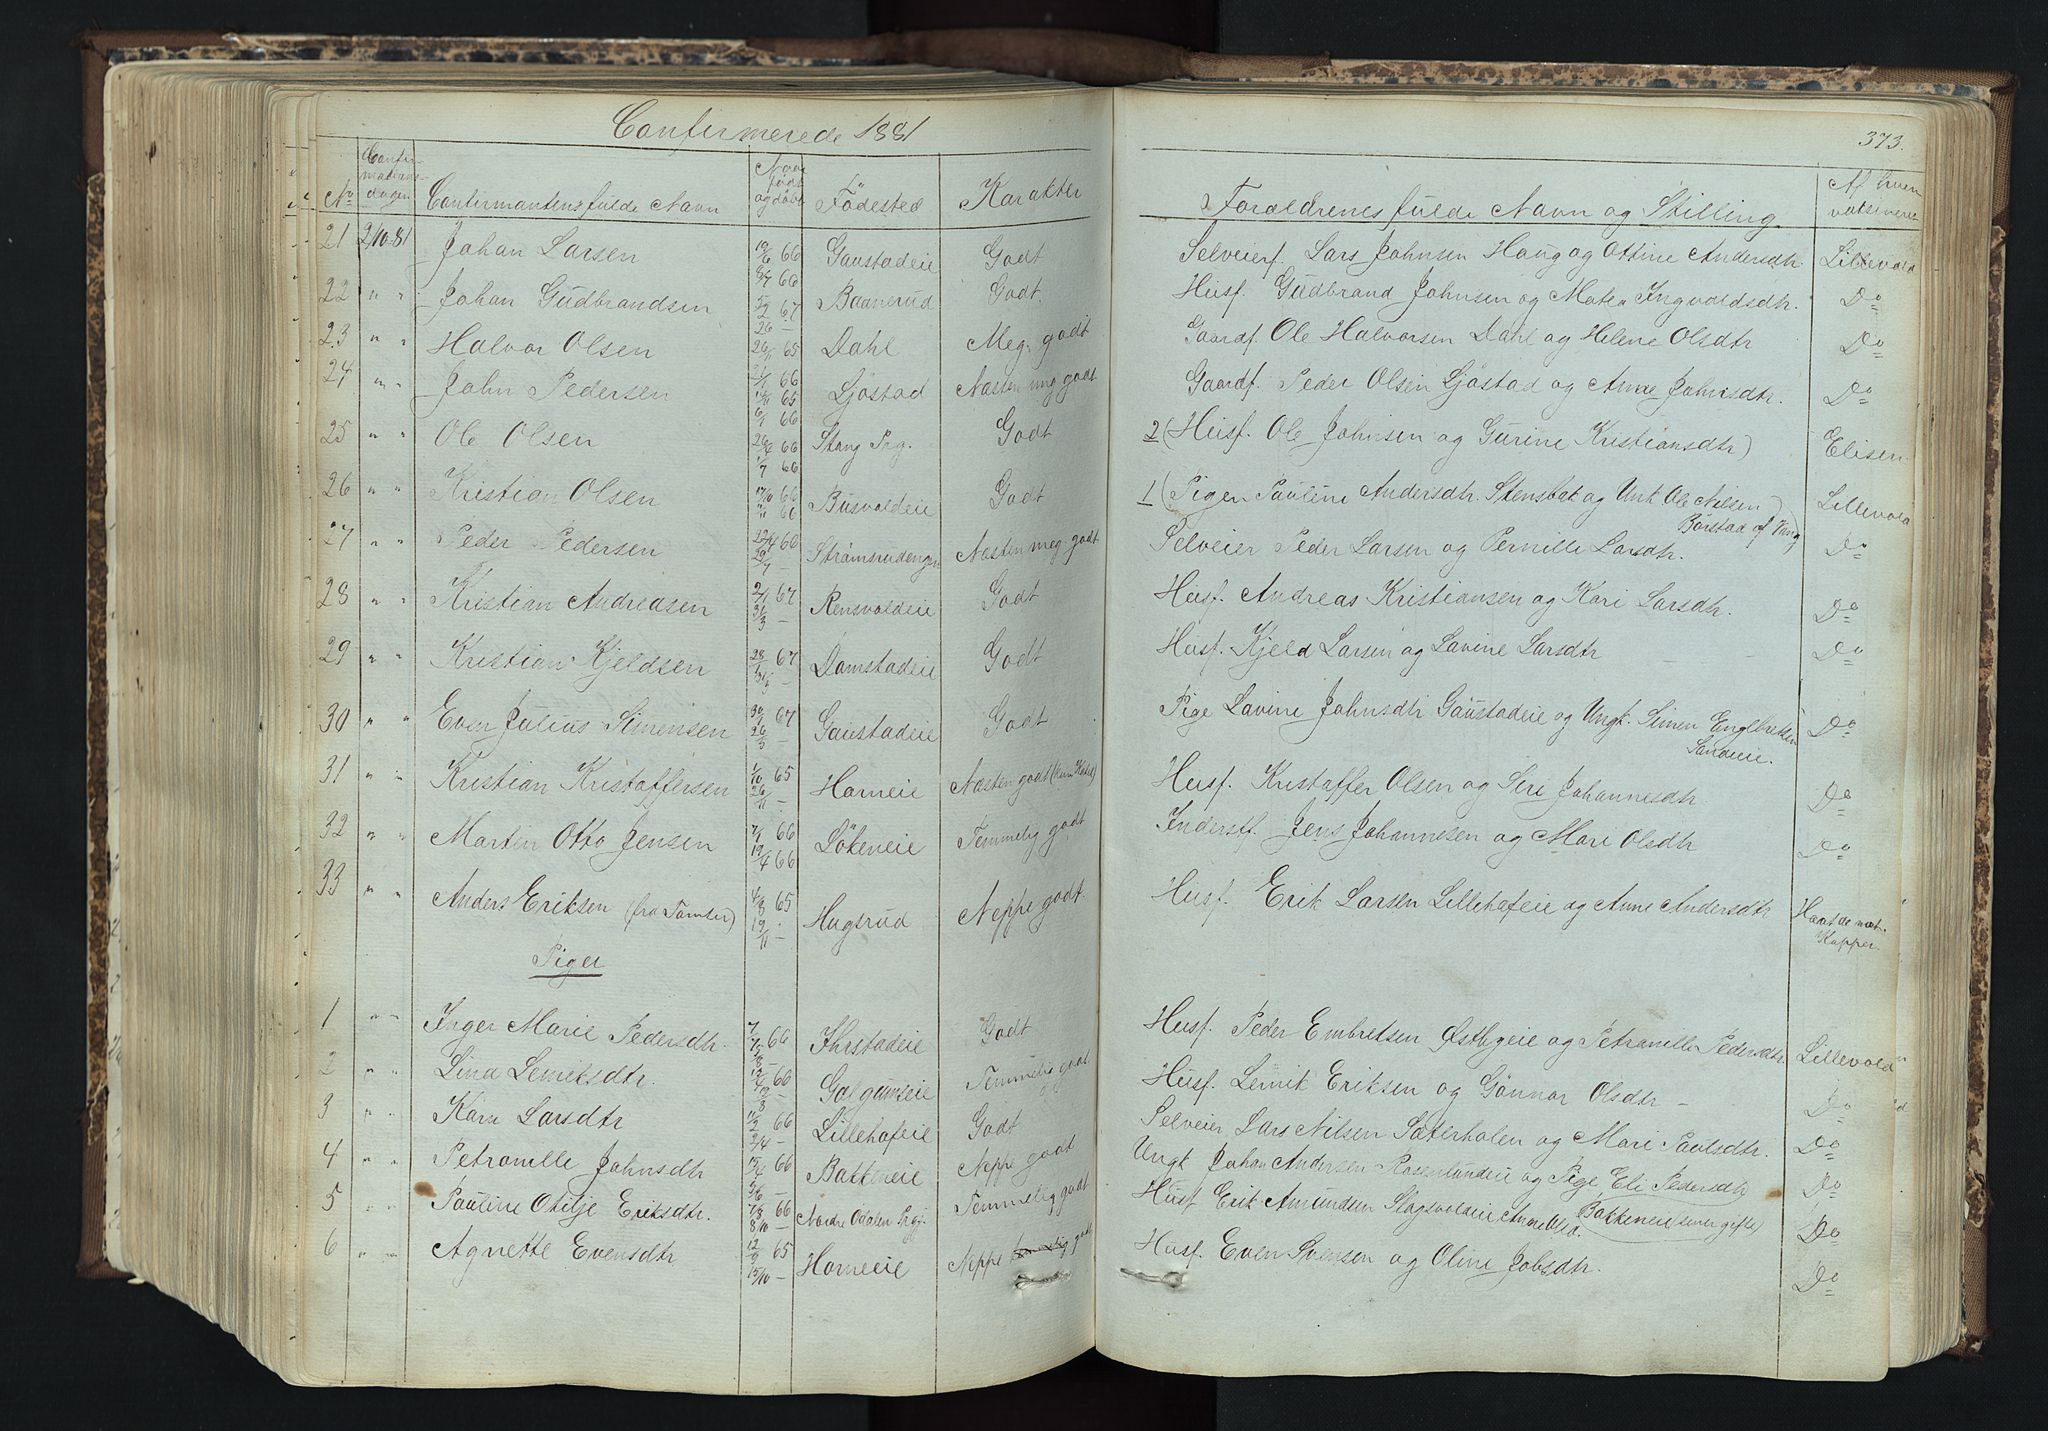 Confirmerede 1881
373.
No
Confir-
mations-
dagen
Confirmantens fulde Navn
Naar
født
og døbt
Födested
Karakter
Forældrenes fulde Navn og Stilling
Af hvem
vaksineret
21 2/10 81 Johan Larsen 66 Gaustadeie Godt Selveierf. Lars Johnsen Haug og Ottine Andersdtr. Lillevold
22 " " Johan Gudbrandsen 66 Baanerud Godt. Husf. Gudbrand Johnsen og Matea Ingvaldsdtr. Do
23 " " Halvor Olsen 67 Dahl Meg. godt Gaardf. Ole Halvorsen Dahl og Helene Olsdtr Do
24 " " John Pedersen Ljöstad Næsten mg godt Gaardf. Peder Olsen Ljöstad og Anne Johnsdtr. Do
25 " " Ole Olsen 26/4 66 Stang Prg. Godt 2 (Husf. Ole Johnsen og Gurine Kristiansdtr) Elisen
26 " " Kristian Olsen 17/10 66 Busvoldeie Godt 1 (Pigen Pauline Andersdtr. Stensbak og Unk Ole Nilsen
Börstad af Vang)
Lillevold
27 " " Peder Pedersen Strömsrudengen Næsten meg. godt Selveier Peder Larsen og Pernille Larsdtr. Do
28 " " Kristian Andreasen 2/1 67 31/3 - Rensvoldeie Godt Husf. Andreas Kristiansen og Kari Larsdtr. Do
29 " " Kristian Kjeldsen 28/1 67 Damstadeie Godt Husf. Kjeld Larsen og Lavine Larsdtr Do
30 " " Even Julius Simensen 30/1 67 26/5 - Gaustadeie Godt Pige Lavine Johnsdtr Gaustadeie og Ungk. Simen Englbretsen
Sandeie.
Do
31 " " Kristian Kristoffersen 1/10 65 26/11 - Horneie Næsten godt Husf. Kristoffer Olsen og Siri Johannesdtr Do
32 " " Morten Otto Jensen 66 19/4 66 Lökeneie Temmelig godt Inderstf. Jens Johannesen og Mari Olsdtr Do
33 " " Anders Eriksen (fra Tomter) 4/8 65 19/11 Hugsrud Neppe godt. Husf. Erik Larsen Lillehofeie og Anne Andersdtr Havde nat.
Kopper.
Piger
1 " " Inger Marie Pedersdtr. 66 Godt Husf. Peder Embretsen Østbyeie og Petronelle Pedersdtr Lillevold
2 " " Lina Lemiksdtr. Galgumseie Temmelig godt Husf. Lemik Eriksen og Gönnor Olsdtr - Do
3 " " Karn Larsdtr 11/2 66 2/4 - Lillehofeie Godt Selveier Lars Nilsen Säterholen og Mari Paulsdtr. Do
4 " " Petronelle Johnsdtr 15/4 66 Bakkeneie Neppe godt Ungk Johan Andersen Rosenlundeie og Pige Eli Pedersdtr
Bakkeneie (senere gifte)
Do
5 " " Pauline Otilje Eriksdtr. 7/8 66 8/10 - Nordre Odalen Prgj. Temmelig godt Husf Erik Amundsen Slagsvoldeie Anne Olsd. Do
6 " " Agnette Evensdtr 12/9 65 15/10 - Horneeie Neppe godt Husf. Even Svensen og Oline Jobsdtr. Do